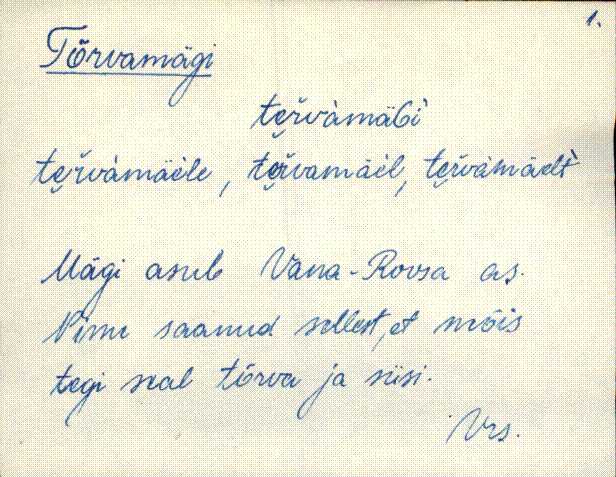 1.
Tõrvamägi
te̮ŕvàmäGì
te̮ŕvàmäèle, te̮ŕvamäèl, te̮ŕvàmäelt
Mägi asub Vana-Roosa as.
Nimi saanud sellest, et mõis
tegi seal tõrva ja süsi.
Vrs.